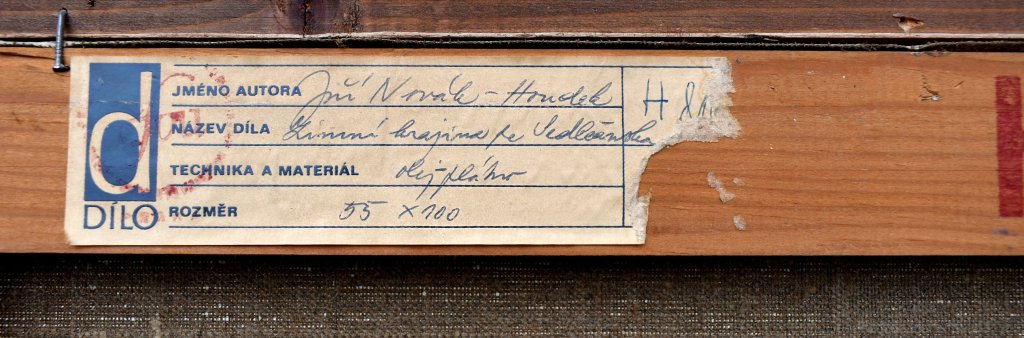 d
DÍLO
JMÉNO AUTORA Jiří Novák - Houdek
NÁZEV DÍLA Zimní krajina ze Sedlčanska
TECHNIKA A MATERIÁL olej plátno
ROZMĚR 55 x 100
H